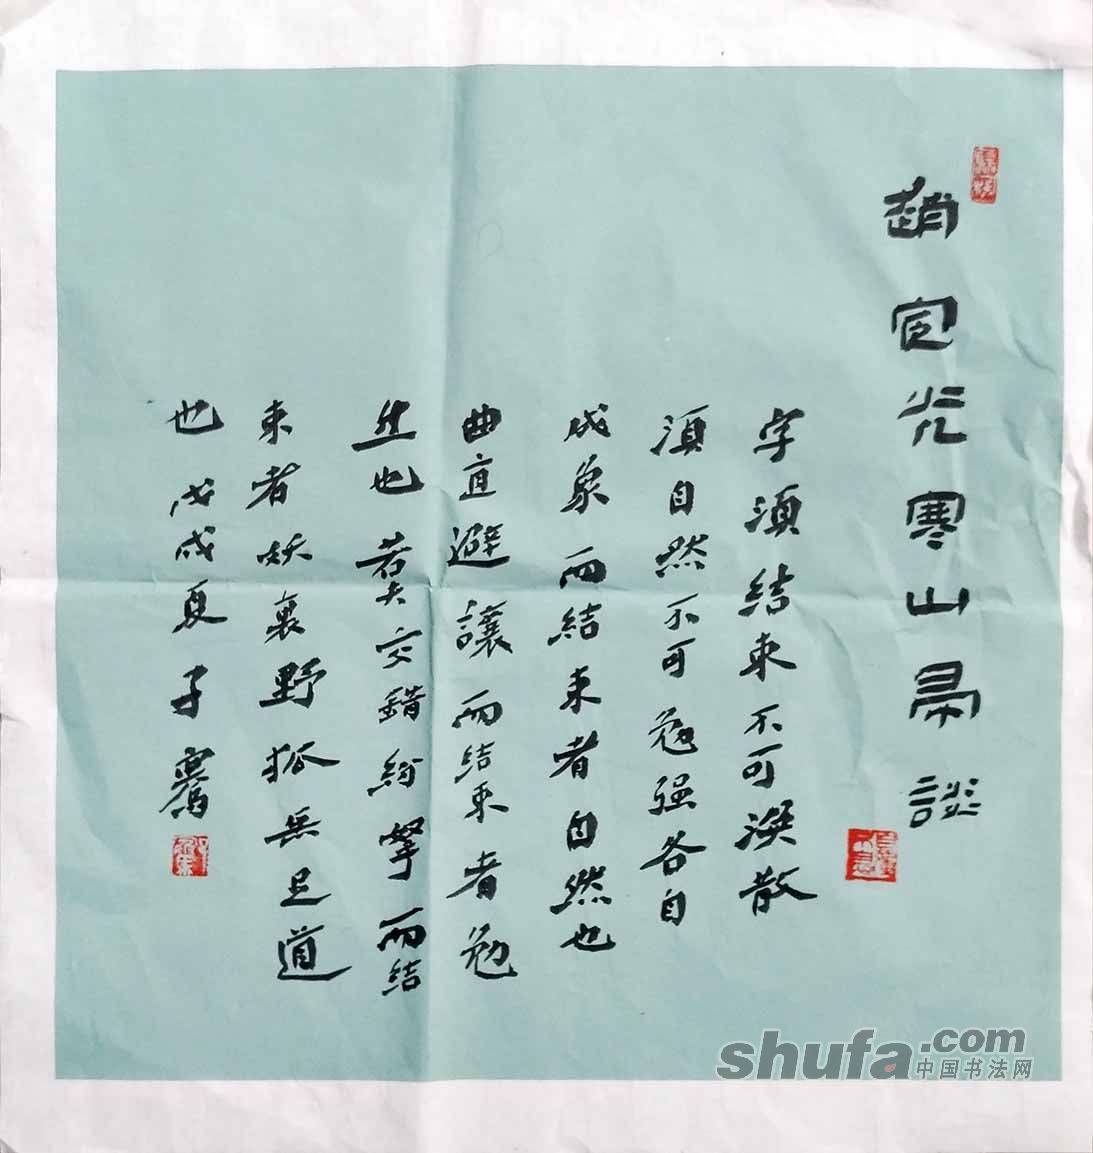 趙宧光寒山帚談
字須結束不可渙散
須自然不可勉强各自
成象而結束者自然也
曲直避讓而結束者勉
生也若夫交錯紛拏而結
束者妖裏野狐無足道
也戊戌夏子騫
shufa.com
中国书法网